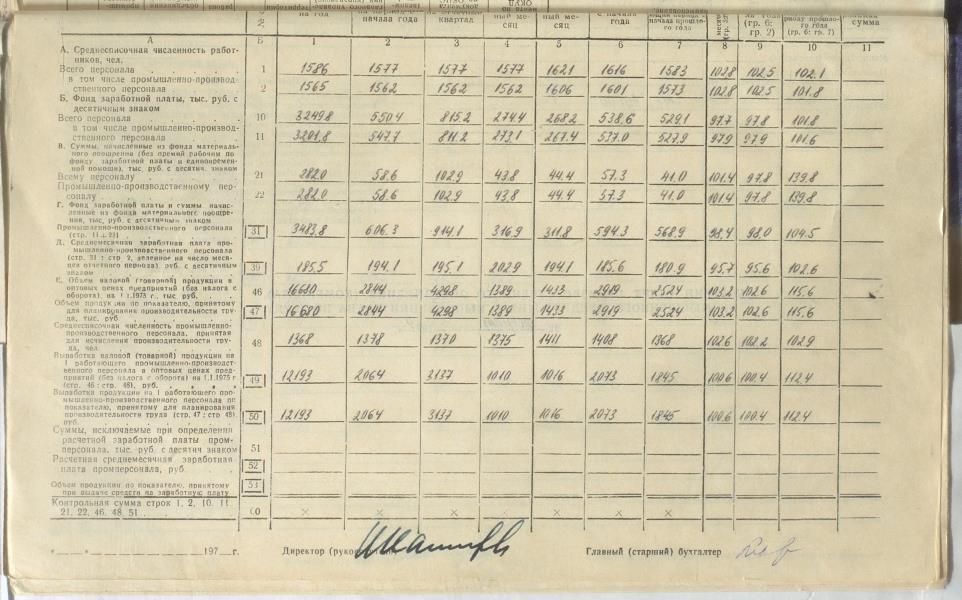 на год начала года квартал ный месяц ный месяц с начала года начала прошлого года (гр. 6: гр. 2) (гр. 6: гр. 7) сумма
А Б 1 2 3 4 5 6 7 8 9 10 11
А. Среднесписочная численность работ-
ников, чел.
Всего персонала 1 1586 1577 1577 1577 1621 1616 1583 102.8 102.5 102.1
в том числе промышленно-производ-
ственного персонала 2 1565 1562 1562 1562 1606 1601 1573 102.8 102.5 101.8
Б. Фонд заработной платы, тыс. руб. с
десятичным знаком
Всего персонала 10 3249.8 550.4 815.2 274.4 268.2 538.6 529.1 97.7 97.8 101.8
в том числе промышленно-производ-
ственного персонала 11 3201.8 547.7 811.2 273.1 267.4 537.0 527.9 97.9 97.9 101.6
В. Суммы, начисленные из фонда материаль-
ного поощрения (без премий рабочим по
фонду заработной платы и единовремен-
ной помощи), тыс. руб. с десятич. знаком
Всему персоналу 21 282.0 58.6 102.9 43.8 44.4 57.3 41.0 101.4 97.8 139.8
Промышленно-производственному пер-
соналу 22 282.0 58.6 102.9 43.8 44.4 57.3 41.0 101.4 97.8 139.8
Г. Фонд заработной платы и суммы начис-
ленные из фонда материального поощре-
ния, тыс. руб. с десятичным знаком
Промышленно-производственного персонала
(стр. 11+22) 31 3483.8 606.3 914.1 316.9 311.8 594.3 568.9 98.4 98.0 104.5
Д. Среднемесячная заработная плата про-
мышленно-производственного персонала
(стр. 31 : стр. 2, деленное на число меся-
цев отчетного периода), руб. с десятичным
знаком 39 185.5 194.1 195.1 202.9 194.1 185.6 180.9 95.7 95.6 102.6
Е. Объем валовой (товарной) продукции в
оптовых ценах предприятий (без налога с
оборота), на 1.1.1975 г., тыс. руб. 46 16680 2844 4298 1389 1433 2919 2524 103.2 102.6 115.6
Объем продукции по показателю, принятому
для планирования производительности тру-
да, тыс. руб. 47 16680 2844 4298 1389 1433 2919 2524 103.2 102.6 115.6
Среднесписочная численность промышленно-
производственного персонала, принятая
для исчисления производительности тру-
да, чел. 48 1368 1378 1370 1375 1411 1408 1368 102.6 102.2 102.9
Выработка валовой (товарной) продукции на
1 работающего промышленно-производст-
венного персонала в оптовых ценах пред-
приятий (без налога с оборота) на 1.1.1975 г
(стр. 46 : стр. 48), руб. 49 12193 2064 3137 1010 1016 2073 1845 100.6 100.4 112.4
Выработка продукции на 1 работающего про-
мышленно-производственного персонала по
показателю, принятому для планирования
производительности труда (стр. 47 : стр 48),
руб. 50 12193 2064 3137 1010 1016 2073 1845 100.6 100.4 112.4
Суммы, исключаемые при определении
расчетной заработной платы пром-
персонала, тыс. руб. с десятич знаком 51
Расчетная среднемесячная заработная
плата промперсонала, руб. 52
Объем продукции по показателю, принятому
при выдаче средств на заработную плату 53
Контрольная сумма строк 1, 2, 10, 11
21, 22, 46, 48, 51 60 × × × × × × ×
„ “ 197 г. Директор (руково Главный (старший) бухгалтер